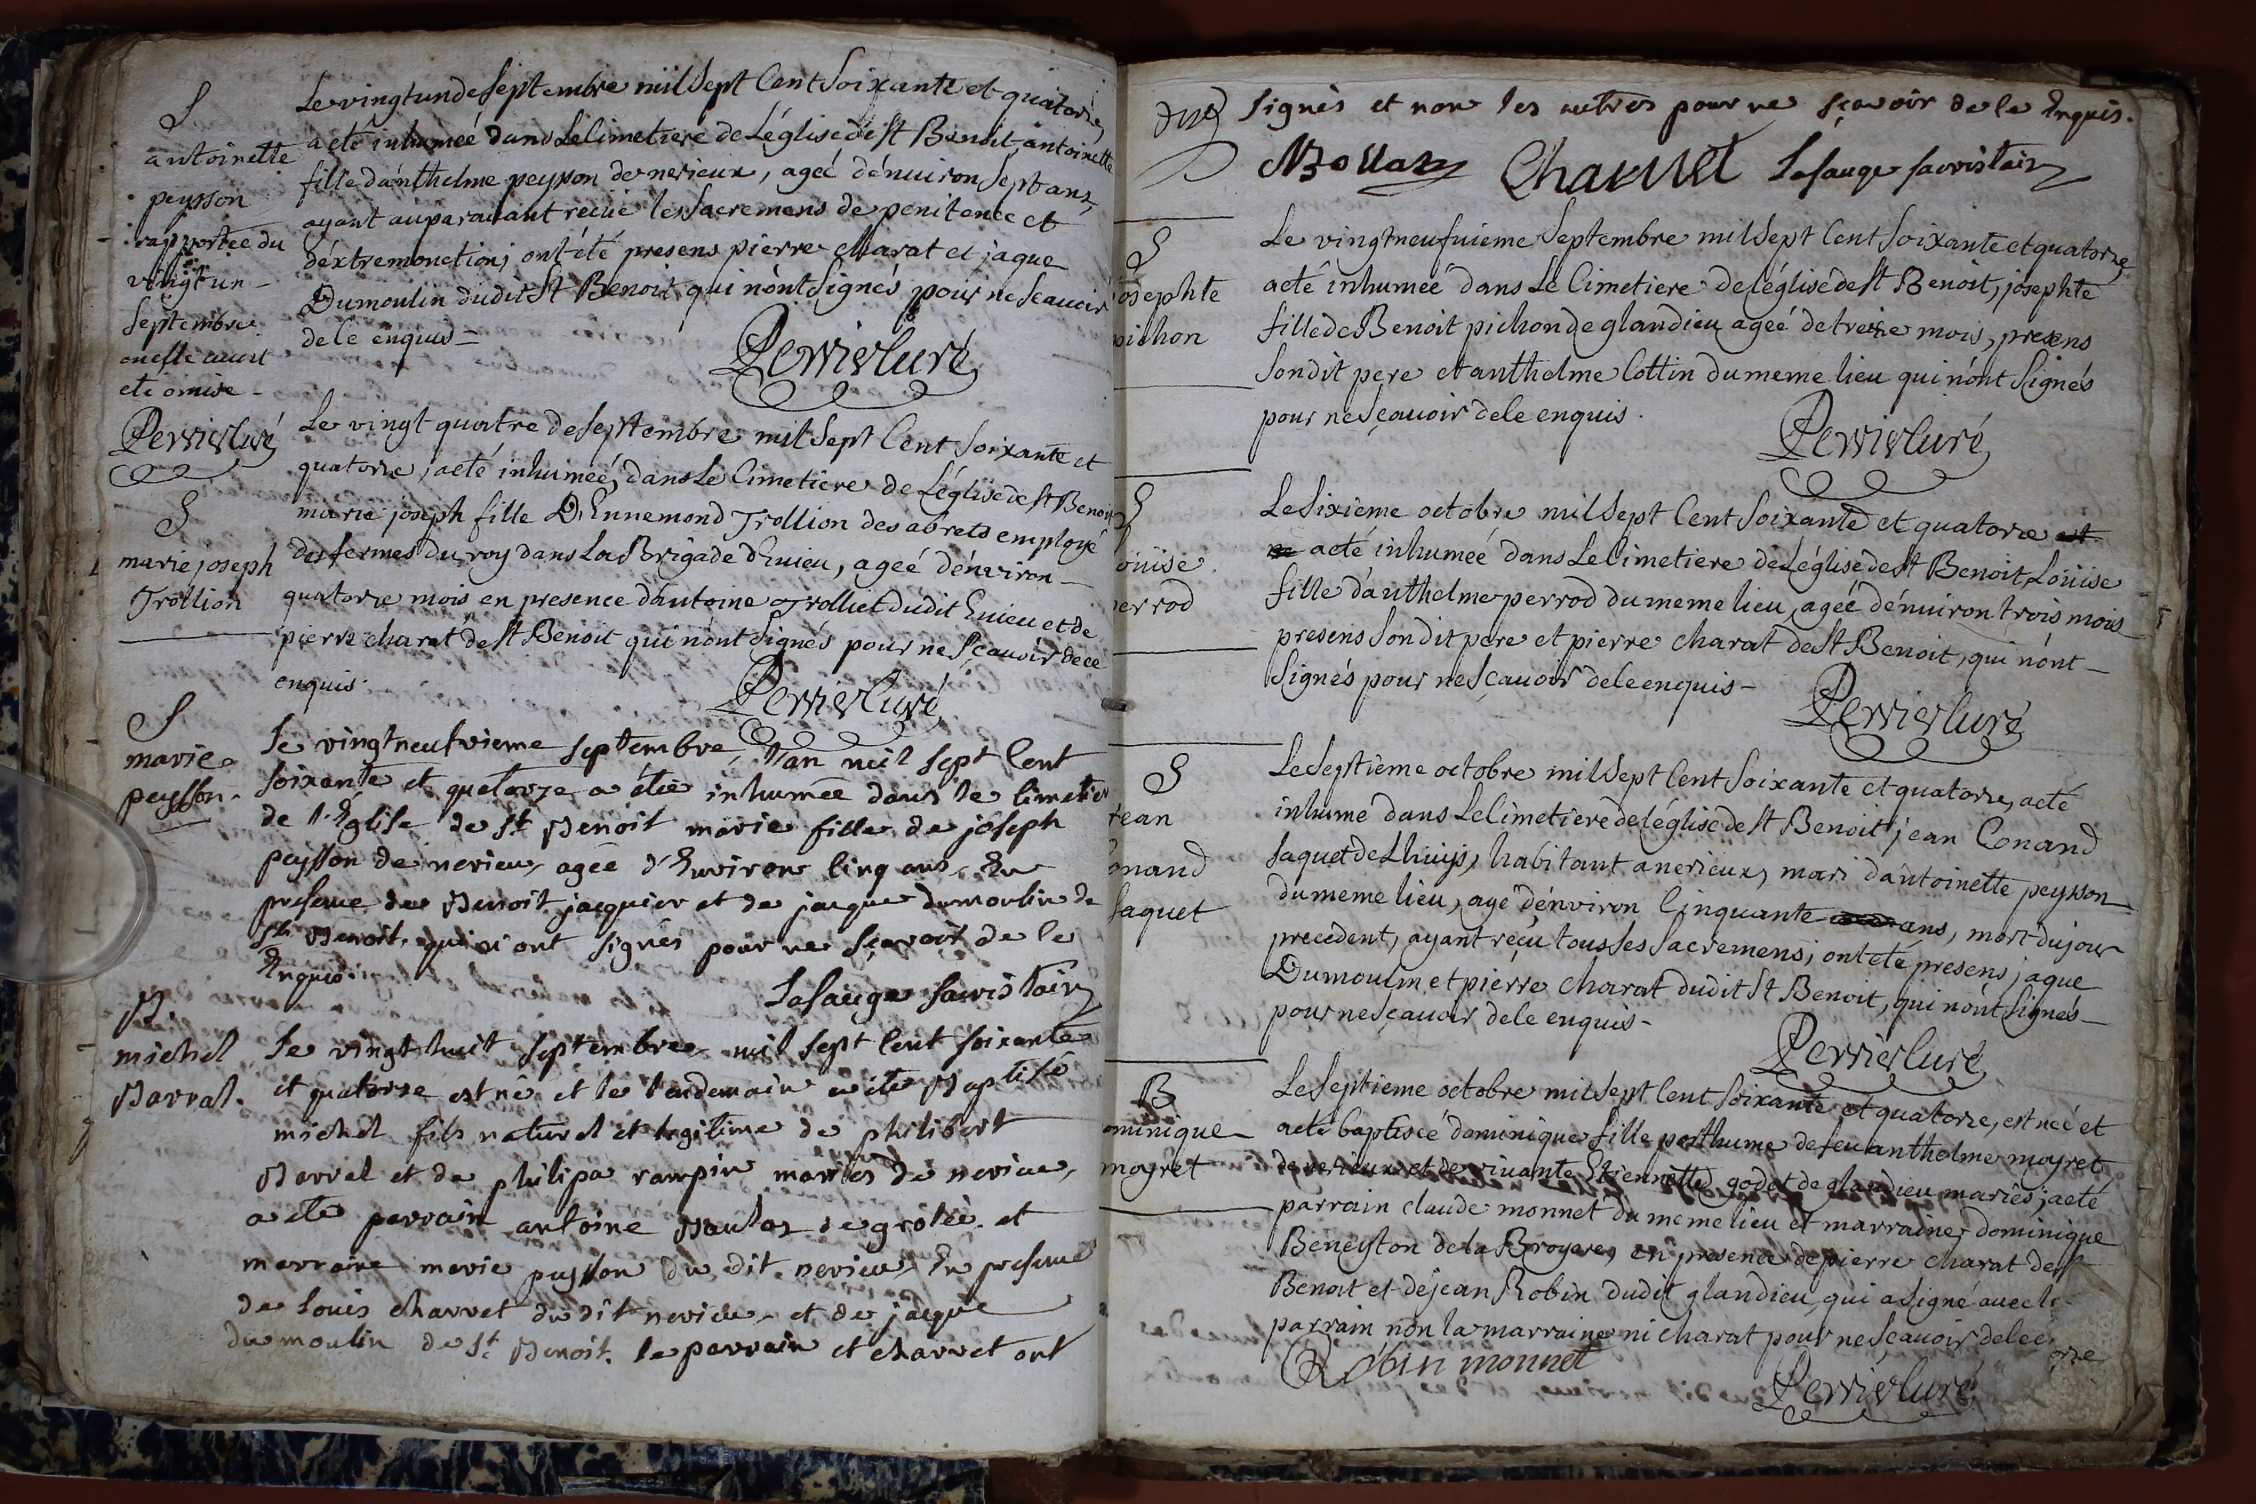 S
antoinette
peysson
rapportée du
vingt un
Septembre
ou elle avoit
eté omise -
Perrier Curé
Le vingt un de Septembre mil Sept Cent Soixante et quatorze,
a eté inhumeé dans Le Cimetiere de Léglise de St Benoit antoinette
fille d'anthelme peysson de nerieux, ageé d'énuiron Sept ans,
ayant auparauant recüe les Sacremens de penitence et
d'éxtremonction; ont été presens pierre charat et jaque
Dumoulin dudit St Benoit qui n'ont Signés pour ne Scauoir
de ce enquis -
Perrier Curé
S
marie joseph
Trollion
Le vingt quatre de Septembre mil Sept Cent Soixante et
quatorze, a eté inhumeé, dans Le Cimetiere de Léglise de St Benoit
marie joseph fille D'Ennemond Trollion des abrets employé
des fermes du roy dans La Brigade d'Euieu, ageé d'énviron -
quatorze mois en presence d'antoine Trolliet dudit Euieu et de
pierre charat de St Benoit qui n'ont Signés pour ne Sçauoir de ce
enquis.
Perrier Curé
S
marie
peysson.
Le vingt neufvieme septembre, l'an mil sept Cent
soixante et quatorze a étée inhumée dans le Cimetier
de l'Église de St Benoit marie fille de joseph
peysson de nerieu, agée d'Environ Cinq ans, En
presence de Benoit jacquier et de jacque dumoulin de
St Benoit, qui n'ont signés pour ne sçavoir de le
Enquis.
Lasauge sacristain
B.
michel
Barral.
Le vingt huit septembre mil sept Cent soixante
et quatorze est né et le lendemain a été Baptisé
michel fils naturel et legitime de philibert
Barral et de philipa rampin mariés de nerieu,
a eté parrain antoine Boulas de grolée et
marraine marie peysson du dit nerieu, En presence
de Louis charvet du dit nerieu, et de jacque
du moulin de St Benoit. le parrain et charvet ont
signés et non les autres pour ne sçavoir de le Enquis.
Charvet Lasauge sacristain
S
josephte
pichon
Le vingtneufuieme Septembre mil Sept Cent Soixante et quatorze
a eté inhumeé dans Le Cimetiere de Léglise de St Benoit, josephte
fille de Benoit pichon de glandieu ageé de treize mois, presens
Son dit pere et anthelme Cottin du meme lieu qui n'ont Signés
pour ne Sçauoir de le enquis.
Perrier Curé
S
Loüise
perrod
Le Sixieme octobre mil Sept Cent Soixante et quatorze
a eté inhumeé dans Le Cimetiere de Léglise de St Benoit, Loüise
fille d'anthelme perrod du meme lieu, ageé d'énuiron trois mois
presens Son dit pere et pierre charat de St Benoit, qui n'ont -
Signés pour ne Sçauoir de le enquis -
Perrier Curé
S
jean
Conand
Saquet
Le Septieme octobre mil Sept Cent Soixante et quatorze, a eté
inhumé dans Le Cimetiere de Léglise de St Benoit jean Conand
Saquet de Lhuijs, habitant a nerieux, mari d'antoinette peysson
du meme lieu, agé d'énviron Cinquante ans, mort du jour
precedent, ayant reçu tous Ses Sacremens; ont eté presens jaque
Dumoulin et pierre charat dudit St Benoit, qui n'ont Signés -
pour ne Sçauoir de le enquis -
Perrier Curé
B
dominique
moyret
Le Septieme octobre mil Sept Cent Soixante et quatorze, est neé et
a eté baptiseé dominique fille posthume de feu anthelme moyret
de nerieux et de viuante Etiennette godet de glandieu mariés; a eté
parrain claude monnet du meme lieu et marraine, dominique
Beneyton de la Broyere, en presence de pierre charat de St
Benoit et de jean Robin dudit glandieu, qui a Signé auec le
parrain non la marraine ni charat pour ne Sçauoir de le
Robin monnet
Perrier Curé